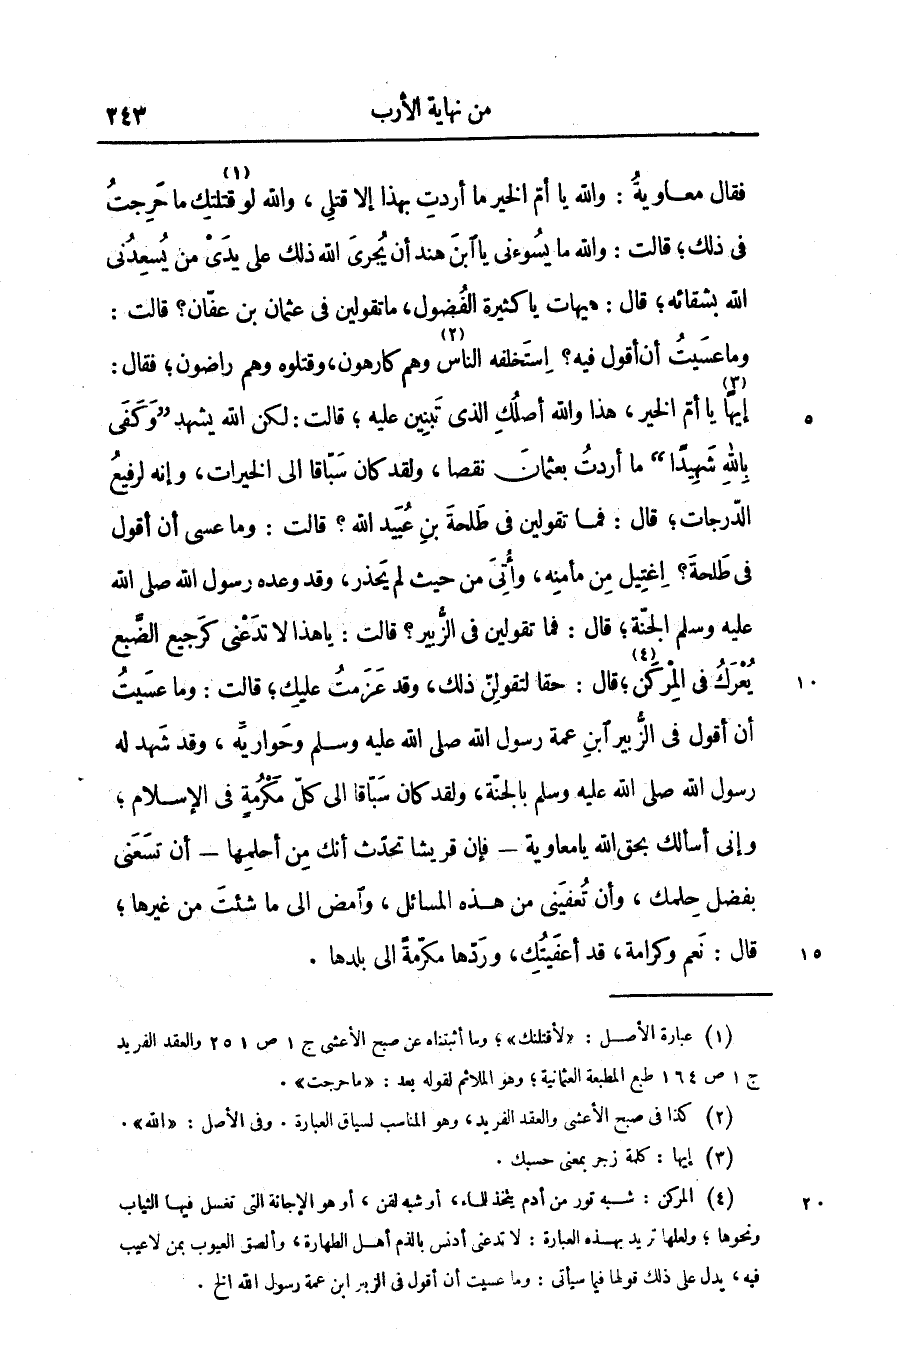 من نهاية الأرب ٢٤٣
فقال معاويةُ : والله يا أمّ الخير ما أردتِ بهذا إلا قتلِى ، والله لو قتلتكِ (١) ما حَرِجتُ
فى ذلك؛ قالت : والله ما يسُوءنى يا آبنَ هند أن يُجرىَ الله ذلك على يدَىْ من يُسعِدُنى
الله بشقائه؛ قال : هيهات يا كثيرة الفُضول، ما تقولين فى عثمان بن عفّان؟ قالت :
وما عسَيتُ أن أقول فيه؟ اِستَخلفه الناس (٢) وهم كارهون، وقتلوه وهم راضون؛ فقال :
إيهًا (٣) يا أمّ الخير، هذا والله أصلُكِ الذى تَبنِين عليه ؛ قالت : لكن الله يشهد ”وَكَفَى ٥
بِاللهِ شَهِيدًا“ ما أردتُ بعثمانَ نقصا ، ولقد كان سَبّاقا الى الخيرات، وإنه لرفيعُ
الدّرجات؛ قال : فما تقولين فى طَلحةَ بنِ عُبَيد الله ؟ قالت : وما عسى أن أقول
فى طَلحةَ؟ اِغتِيل مِن مأمنِه، وأُتِىَ من حيث لم يَحذَر، وقد وعده رسول الله صلى الله
عليه وسلم الجنّة؛ قال : فما تقولين فى الزُّبير؟ قالت : يا هذا لا تدَعْنى كرَجيع الضَّبع
يُعْرَكُ فى المِرْكَن (٤)؛ قال : حقا لتقولِنّ ذلك، وقد عَزَمتُ عليكِ؛ قالت : وما عسَيتُ ١٠
أن أقول فى الزُّبير آبنِ عمة رسول الله صلى الله عليه وسلم وحَواريِّه ، وقد شَهد له
رسول الله صلى الله عليه وسلم بالجنّة، ولقد كان سَبّاقا الى كلّ مَكْرُمةٍ فى الإسلام ؛
وإنى أسألك بحق الله يا معاوية – فإن قريشا تحدّث أنك مِن أحلمِها – أن تسَعَنى
بفضل حِلمك ، وأن تُعفيَنى من هذه المسائل ، وآمض الى ما شئتَ من غيرها ؛
قال : نَعم وكرامة، قد أعفَيتُكِ، ورَدّها مكرّمةً الى بلدها . ١٥
(١) عبارة الأصل : «لأقتلنك»؛ وما أثبتناه عن صبح الأعشى ج ١ ص ٢٥١ والعقد الفريد
ج ١ ص ١٦٤ طبع المطبعة العثمانية؛ وهو الملائم لقوله بعد : «ما حرجت» .
(٢) كذا فى صبح الأعشى والعقد الفريد، وهو المناسب لسياق العبارة . وفى الأصل : «الله» .
(٣) إيها : كلمة زجر بمعنى حسبك .
(٤) المركن : شبه تور من أدم يتخذ للماء، أو شبه لقن ، أو هو الإجانة التى تغسل فيها الثياب ٢٠
ونحوها ؛ ولعلها تريد بهذه العبارة : لا تدعنى أدنس بالذم أهل الطهارة، وألصق العيوب بمن لا عيب
فيه، يدل على ذلك قولها فيما سيأتى : وما عسيت أن أقول فى الزبير ابن عمة رسول الله الخ .